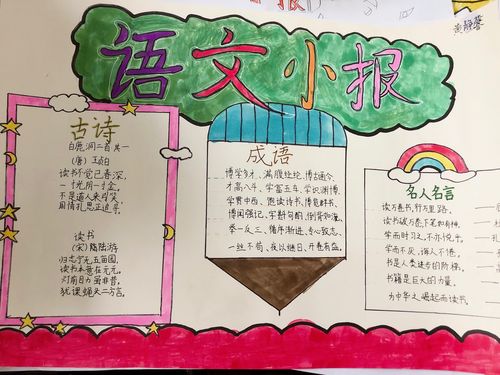 语文小报
古诗
白鹿洞二首 其一
(唐) 王贞白
读书不觉已春深,
一寸光阴一寸金,
不是道人来引笑,
周情孔思正追寻。
读书
(宋) 陆游
归志宁无五亩园,
读书本意在元元。
灯前目力虽非昔,
犹课蝇头二万言。
成语
博学多才、满腹经纶、博古通今、
才高八斗、学富五车、学识渊博、
学贯中西、饱读诗书、博览群书、
博闻强记、字斟句酌、倒背如流、
举一反三、循序渐进、专心致志、
一丝不苟、夜以继日、开卷有益。
名人名言
读万卷书,行万里路。
读书破万卷,下笔如有神。
学而时习之,不亦悦乎。
学而不厌,诲人不倦。
书是人类进步的阶梯。
书籍是巨大的力量。
为中华之崛起而读书